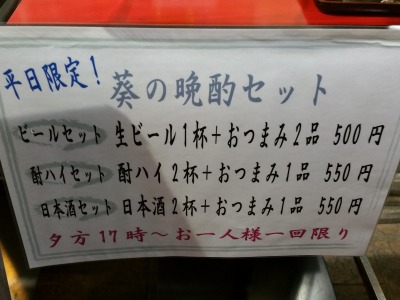 平日限定！
葵の晩酌セット
ビールセット 生ビール1杯+おつまみ2品 500円
酎ハイセット 酎ハイ2杯+おつまみ1品 550円
日本酒セット 日本酒2杯+おつまみ1品 550円
夕方17時～お一人様一回限り